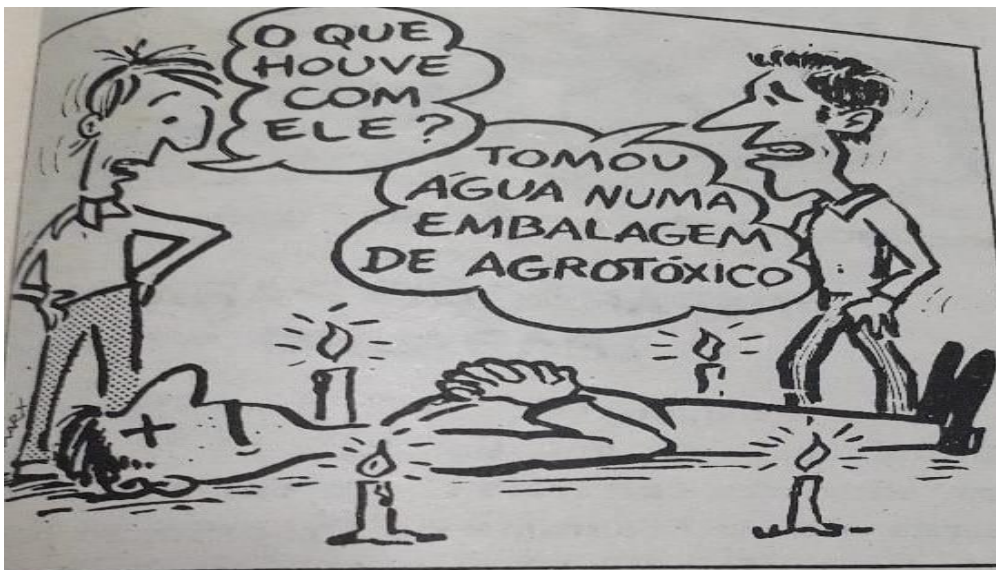 O QUE
HOUVE
COM
ELE?
TOMOU
ÁGUA NUMA
EMBALAGEM
DE AGROTÓXICO